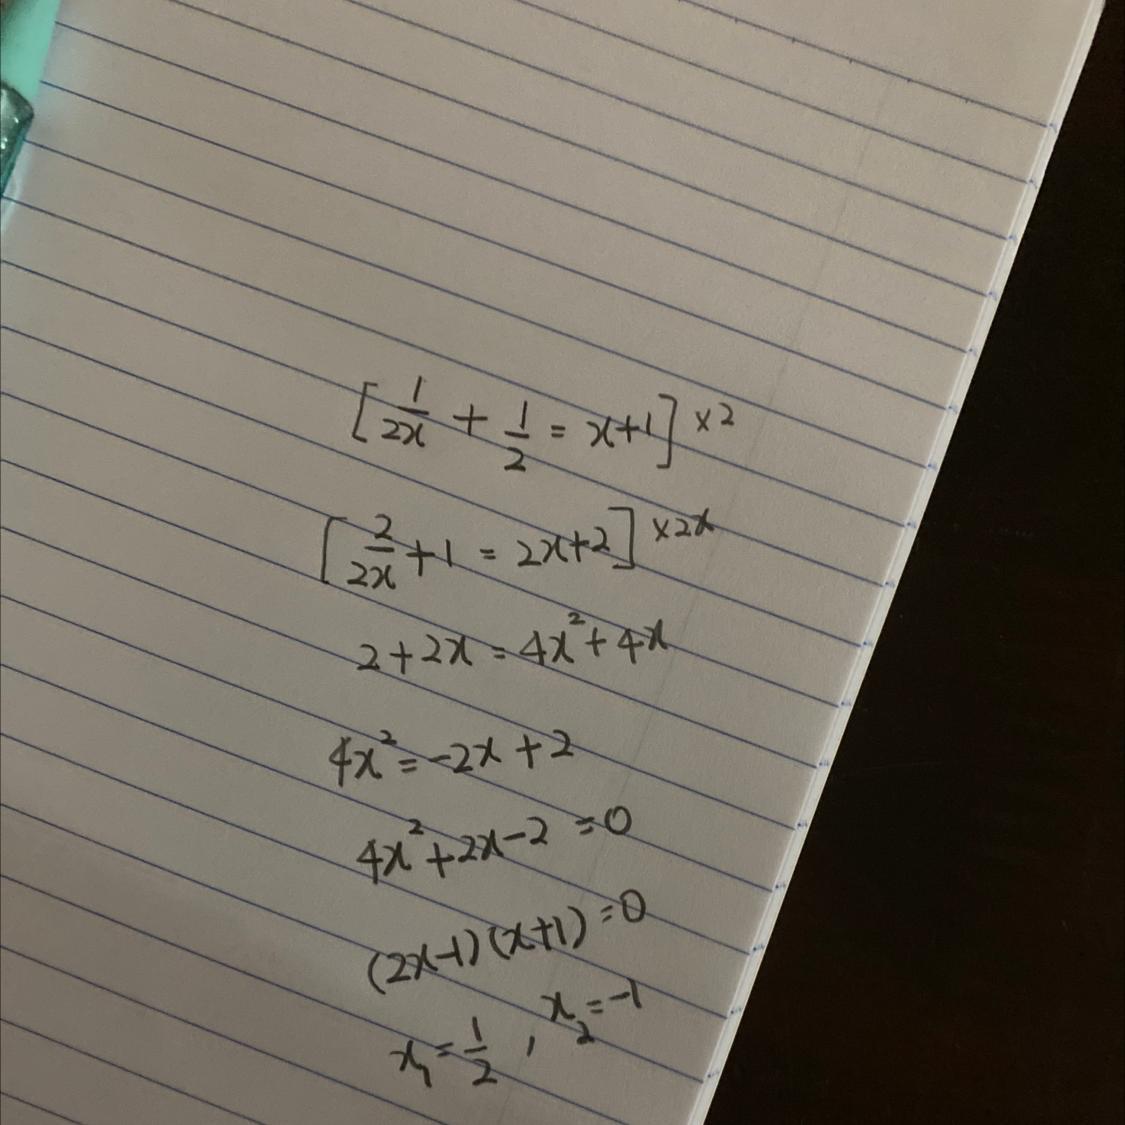 [1/2x + 1/2 = x+1] ×2
[2/2x + 1 = 2x+2] ×2x
2+2x = 4x² + 4x
4x² = -2x + 2
4x² + 2x - 2 = 0
(2x-1)(x+1) = 0
x₁ = 1/2 , x₂ = -1